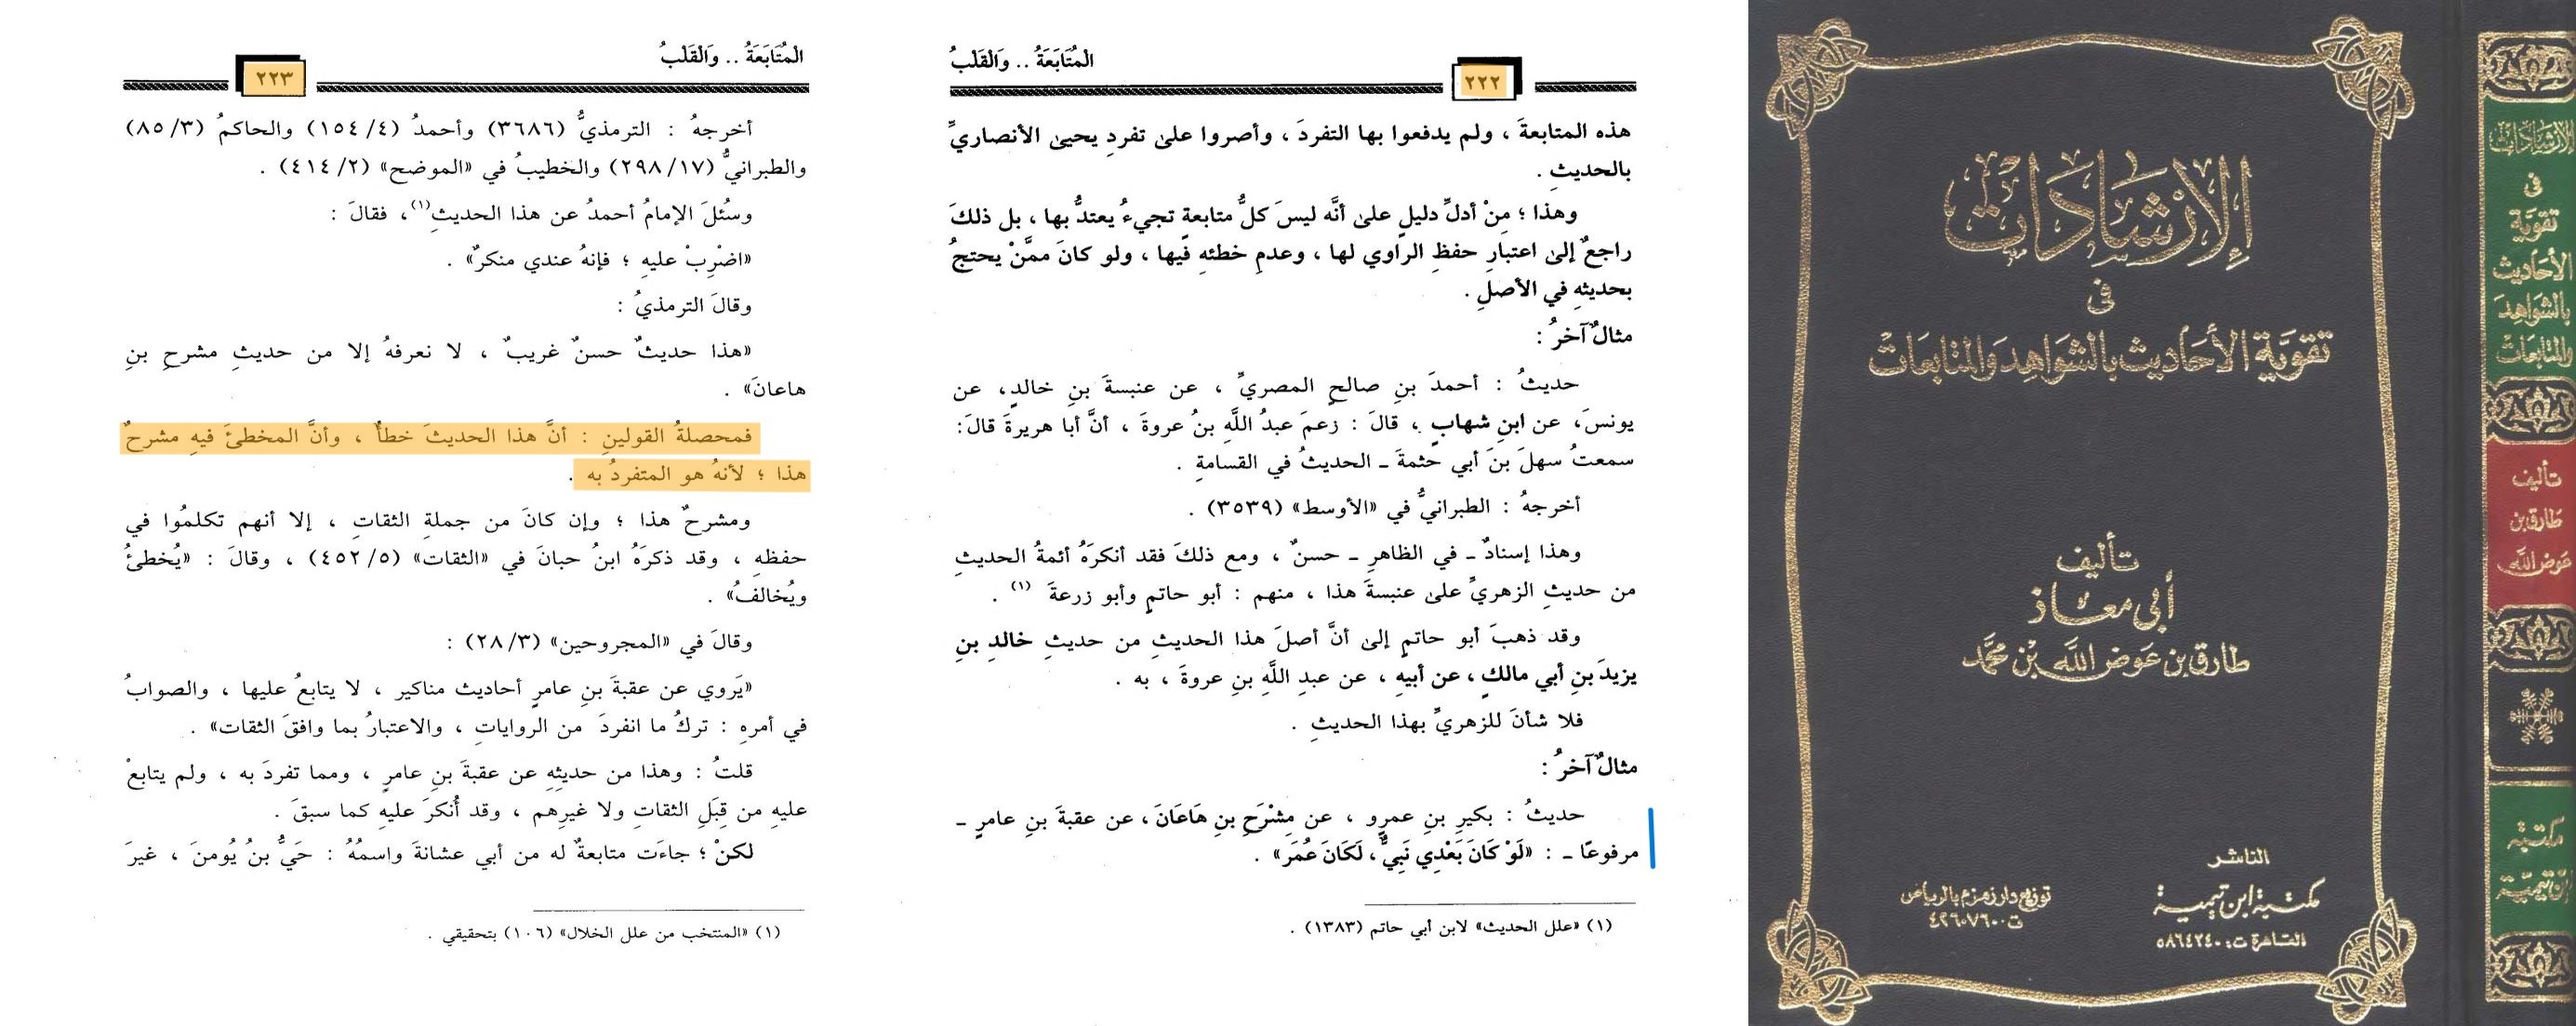 الإرشادات
في
تقوية الأحاديث بالشواهد والمتابعات
تأليف
أبي معاذ
طارق بن عوض الله بن محمد
الناشر
مكتبة ابن تيمية
القاهرة ت: ٥٨٦٤٢٤٠
توزيع دار زمزم بالرياض
ت ٤٢٦٠٧٦٠٠
الإرشادات
في
تقوية
الأحاديث
بالشواهد
والمتابعات
تأليف
طارق بن
عوض الله
مكتبة
ابن تيمية
المُتَابَعَةُ .. وَالْقَلْبُ
٢٢٢
هذه المتابعةَ ، ولم يدفعوا بها التفردَ ، وأصروا على تفردِ يحيىٰ الأنصاريِّ
بالحديثِ .
وهذا ؛ مِنْ أدلِّ دليلٍ على أنَّه ليسَ كلُّ متابعةٍ تجيءُ يعتدُّ بها ، بل ذلكَ
راجعٌ إلىٰ اعتبارِ حفظِ الراوي لها ، وعدمِ خطئهِ فيها ، ولو كانَ ممَّنْ يحتجُّ
بحديثهِ في الأصلِ .
مثالٌ آخرُ :
حديثُ : أحمدَ بنِ صالحٍ المصريِّ ، عن عنبسةَ بنِ خالدٍ، عن
يونسَ، عن ابنِ شهابٍ ، قالَ : زعمَ عبدُ اللَّهِ بنُ عروةَ ، أنَّ أبا هريرةَ قالَ :
سمعتُ سهلَ بنَ أبي حثمةَ ـ الحديثُ في القسامةِ .
أخرجهُ : الطبرانيُّ في «الأوسط» (٣٥٣٩) .
وهذا إسنادٌ ـ في الظاهرِ ـ حسنٌ ، ومع ذلكَ فقد أنكرَهُ أئمةُ الحديثِ
من حديثِ الزهريِّ على عنبسةَ هذا ، منهم : أبو حاتمٍ وأبو زرعةَ (١) .
وقد ذهبَ أبو حاتمٍ إلىٰ أنَّ أصلَ هذا الحديثِ من حديثِ خالدِ بنِ
يزيدَ بنِ أبي مالكٍ ، عن أبيهِ ، عن عبدِ اللَّهِ بنِ عروةَ ، به .
فلا شأنَ للزهريِّ بهذا الحديثِ .
مثالٌ آخرُ :
حديثُ : بكيرِ بنِ عمرٍو ، عن مِشْرَحِ بنِ هَاعَانَ ، عن عقبةَ بنِ عامرٍ ـ
مرفوعًا ـ : «لَوْ كَانَ بَعْدِي نَبِيٌّ ، لَكَانَ عُمَرَ» .
(١) «علل الحديث» لابن أبي حاتم (١٣٨٣) .
المُتَابَعَةُ .. وَالْقَلْبُ
٢٢٣
أخرجهُ : الترمذيُّ (٣٦٨٦) وأحمدُ (٤/ ١٥٤) والحاكمُ (٣/ ٨٥)
والطبرانيُّ (١٧/ ٢٩٨) والخطيبُ في «الموضح» (٢/ ٤١٤) .
وسُئلَ الإمامُ أحمدُ عن هذا الحديثِ(١)، فقالَ :
«اضْرِبْ عليهِ ؛ فإنهُ عندي منكرٌ» .
وقالَ الترمذيُّ :
«هذا حديثٌ حسنٌ غريبٌ ، لا نعرفهُ إلا من حديثِ مشرحِ بنِ
هاعانَ» .
فمحصلةُ القولينِ : أنَّ هذا الحديثَ خطأٌ ، وأنَّ المخطئَ فيهِ مشرحٌ
هذا ؛ لأنهُ هو المتفردُ به .
ومشرحٌ هذا ؛ وإن كانَ من جملةِ الثقاتِ ، إلا أنهم تكلمُوا في
حفظهِ ، وقد ذكرَهُ ابنُ حبانَ في «الثقات» (٥/ ٤٥٢) ، وقالَ : «يُخطئُ
ويُخالفُ» .
وقالَ في «المجروحين» (٣/ ٢٨) :
«يَروي عن عقبةَ بنِ عامرٍ أحاديث مناكير ، لا يتابعُ عليها ، والصوابُ
في أمرهِ : تركُ ما انفردَ من الرواياتِ ، والاعتبارُ بما وافقَ الثقات» .
قلتُ : وهذا من حديثهِ عن عقبةَ بنِ عامرٍ ، ومما تفردَ به ، ولم يتابعْ
عليهِ من قِبَلِ الثقاتِ ولا غيرِهم ، وقد أُنكرَ عليهِ كما سبقَ .
لكنْ ؛ جاءَت متابعةٌ له من أبي عشانةَ واسمُهُ : حَيُّ بنُ يُومنَ ، غيرَ
(١) «المنتخب من علل الخلال» (١٠٦) بتحقيقي .